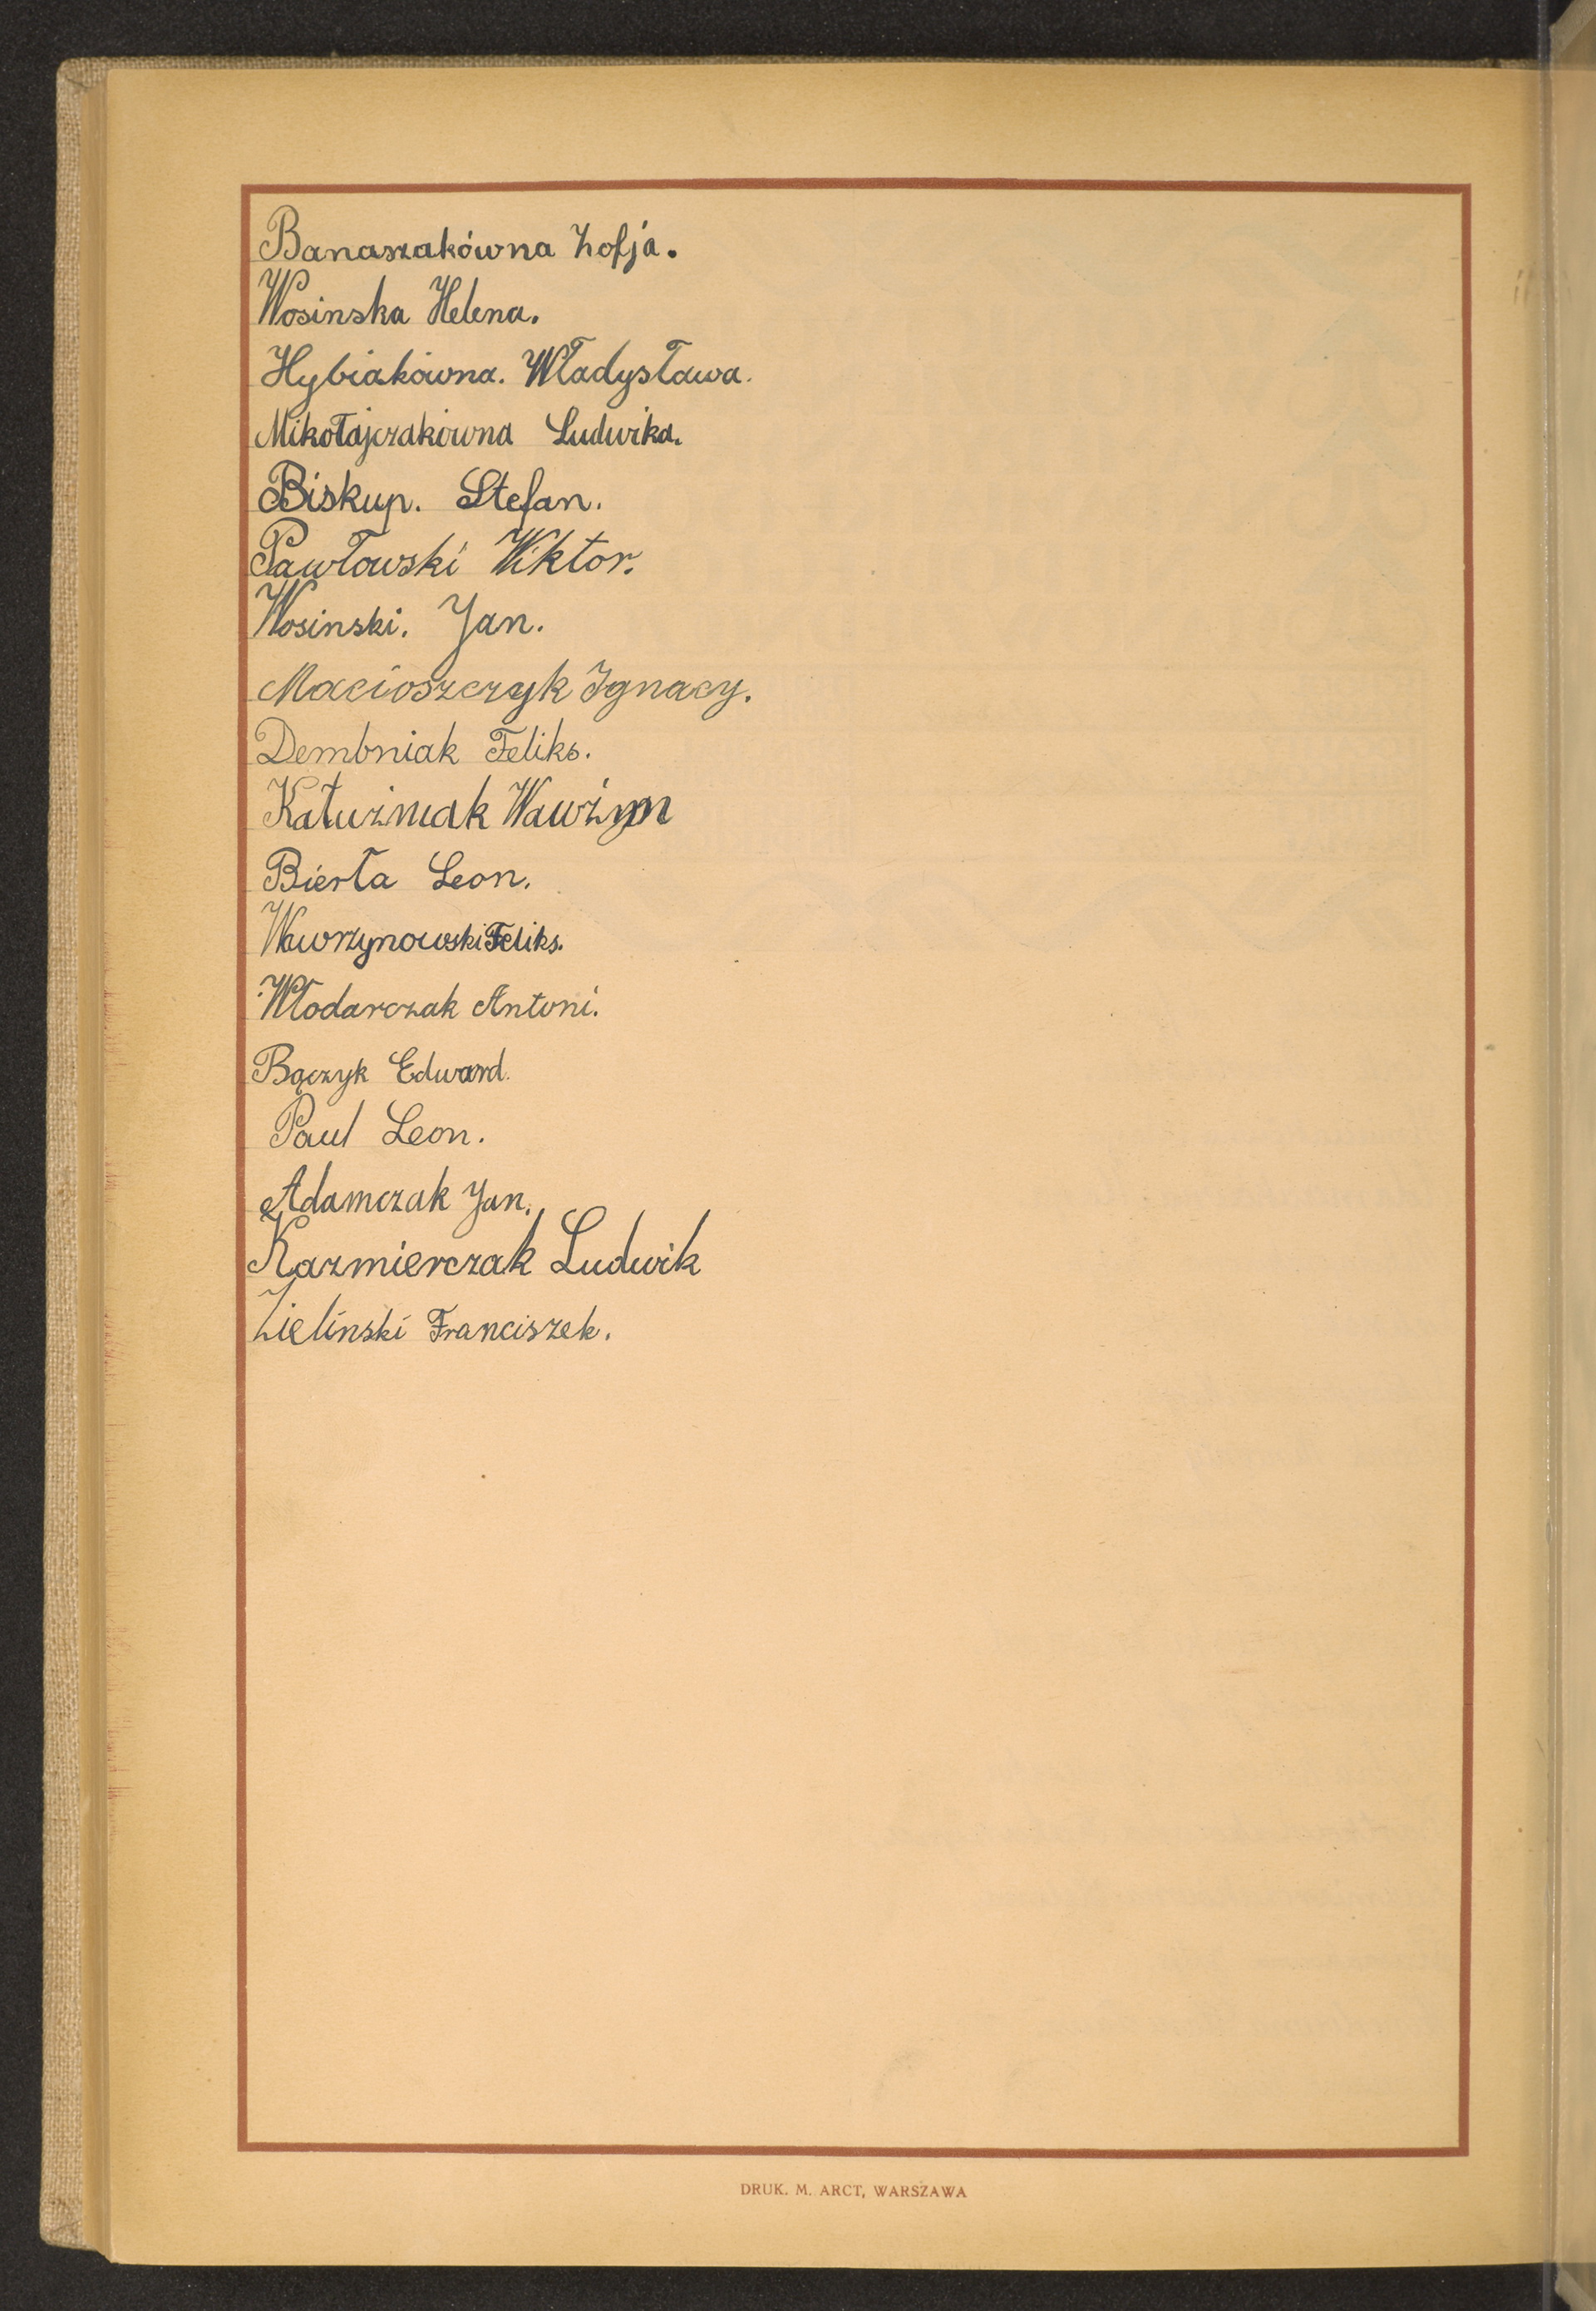 Banaszakówna Zofja.
Wosinska Helena.
Hybiakówna. Władysława.
Mikołajczakówna Ludwika.
Biskup. Stefan.
Pawłowski Wiktor.
Wosinski. Jan.
Macioszczyk Ignacy.
Dembniak Feliks.
Kałuzniak Wawżyn
Bierła Leon.
Wawrzynowski Feliks.
Włodarczak Antoni.
Bączyk Edward.
Paul Leon.
Adamczak Jan.
Kazmierczak Ludwik
Zielinski Franciszek.
DRUK. M. ARCT, WARSZAWA